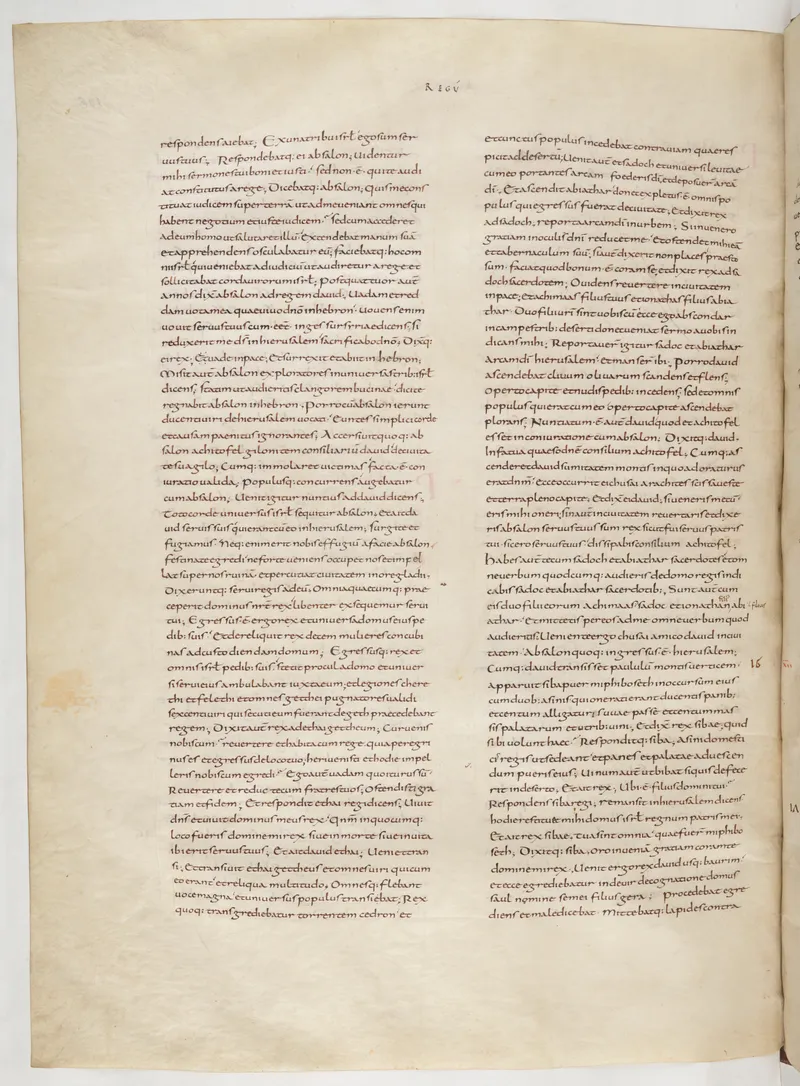 REGŪ
respondens aiebat; Ex una tribu isrł ego sum ser
uus tuus; Respondebatq: ei absalon; Uidentur
mihi sermones tui boni et iusti; sed non ē qui te audi
at constitutus a rege; Dicebatq: absalon; Quis me cons
tituat iudicem super terrā ut ad me ueniant omnes qui
habent negotium et iuste iudicem; sed cum accederet
ad eum homo ut salutaret illū extendebat manum suā
et apprehendens osculabatur eū; faciebatq: hoc omni
isrł qui ueniebat ad iudiciū ut audiretur a rege et
sollicitabat corda uirorum isrł; Post quattuor aut̄
annos dix̄ absalon ad regem dauid; Uadam et red
dam uota mea quae uoui dn̄o in hebron; Uouens enim
uouit seruus tuus cum eēt in gessur syriae dicens; si
reduxerit me dn̄s in hierusalem sacrificabo dn̄o; Dix̄q:
ei rex; Uade in pace; Et surrexit et abiit in hebron;
Misit aut̄ absalon exploratores in uniuersas tribus isrł
dicens; statim ut audieritis clangorem bucinae dicite
regnabit absalon in hebron; Porro cū absalon ierunt
ducenti uiri de hierusalem uocati; Euntes simplici corde
et causam penitus ignorantes; Accersiuit quoq: ab
salon achitofel gilonitem consiliariū dauid de ciuita
te sua gilo; Cumq: immolaret uictimas facta ē con
iuratio ualida; Populusq: concurrens augebatur
cum absalon; Uenit igitur nuntius ad dauid dicens;
Toto corde uniuersus isrł sequitur absalon; Et ait da
uid seruis suis qui erant cū eo in hierusalem; surgite et
fugiamus; Neq: enim erit nobis effugiū a facie absalon;
festinate egredi ne forte ueniens occupet nos et impel
lat super nos ruinā et percutiat ciuitatem in ore gladii;
Dixeruntq: serui regis ad eū; Omnia quaecumq: prae
ceperit dominus nr̄ rex libenter exsequemur serui
tui; Egressus ē ergo rex et uniuersa domus eius pe
dib: suis; Et dereliquit rex decem mulieres concubi
nas ad custodiendam domum; Egressusq: rex et
omnis isrł pedib: suis stetit procul a domo et uniuer
si serui eius ambulabant iuxta eum; et legiones chere
thi et felethi et omnes getthei pugnatores ualidi
sexcenti uiri qui secuti eum fuerant de geth praecedebant
regem; Dixit aut̄ rex ad ethai gettheum; Cur uenis
nobiscum; reuertere et habita cum rege; quia peregri
nus es et egressus de loco tuo; heri uenisti et hodie impel
leris nobiscum egredi; Ego aut̄ uadam quo iturus sū;
Reuertere et reduc tecum fratres tuos; Ostendisti gra
tiam et fidem; Et respondit ethai regi dicens; Uiuit
dn̄s et uiuit dominus meus rex; Qm̄ in quocumq:
loco fueris domine mi rex siue in morte siue in uita
ibi erit seruus tuus; Et ait dauid ethai; Ueni et tran
si; Et transiuit ethai gettheus et omnes uiri qui cum
eo erant et reliqua multitudo; Omnesq: flebant
uoce magna et uniuersus populus transiebat; Rex
quoq: transgrediebatur torrentem cedron et
et cunctus populus incedebat contra uiam quae res
picit ad desertū; Uenit aut̄ et sadoch et uniuersi leuitae
cum eo portantes arcam foederis dī; et deposuer̄ arcā
dī; Et ascendit abiathar donec expletus ē omnis po
pulus qui egressus fuerat de ciuitate; Et dixit rex
ad sadoch; reporta arcam dī in urbem; Si inuenero
gratiam in oculis dn̄i reducet me; Et ostendet mihi eā
et tabernaculum suū; si aut̄ dixerit non places praesto
sum; faciat quod bonum ē coram se; et dixit rex ad sa
doch sacerdotem; O uidens reuertere in ciuitatem
in pace; et achimaas filius tuus et ionathas filius abia
thar; Duo filii ur̄i sint uobiscū ecce ego abscondar
in campestrib: deserti donec ueniat sermo a uobis in
dicans mihi; Reportauer̄ igitur sadoc et abiathar
arcam dī hierusalem et manser̄ ibi; Porro dauid
ascendebat cliuum oliuarum scandens et flens;
operto capite et nudis pedib: incedens; sed et omnis
populus qui erat cum eo operto capite ascendebat
plorans; Nuntiatum ē aut̄ dauid quod et achitofel
esset in coniuratione cum absalon; Dixitq: dauid;
Infatua quaeso dn̄e consilium achitofel; Cumq: as
cenderet dauid summitatem montis in quo adoraturus
erat dn̄m; Ecce occurrit ei chusai arachites scissa ueste
et terra pleno capite; Et dix̄ ei dauid; si ueneris mecū
eris mihi oneri; si aut̄ in ciuitatem reuertaris et dixe
ris absalon seruus tuus sum rex sicut fui seruus patris
tui sic ero seruus tuus; dissipabis consilium achitofel;
habes aut̄ tecum sadoch et abiathar sacerdotes et om
ne uerbum quodcumq: audieris de domo regis indi
cabis sadoc et abiathar sacerdotib:; Sunt aut̄ cum
eis duo filii eorum achimaas sadoc et ionathan abi
athar; Et mittetis per eos ad me omne uerbum quod
audieritis; Ueniente ergo chusai amico dauid in ciui
tatem absalon quoq: ingressus ē hierusalem;
Cumq: dauid transisset paululū montis uerticem 16
apparuit siba puer miphiboseth in occursum eius
cum duob: asinis qui onerati erant ducentis panib:
et centum alligaturis uuae passae et centum mas
sis palatarum et utrib: uini; Et dix̄ rex sibae; quid
sibi uolunt haec; Responditq: siba; Asini domesti
ci regis ut sedeant et panes et palatae ad uescen
dum pueris tuis; Uinum aut̄ ut bibat siquis defece
rit in deserto; Et ait rex; Ubi ē filius domini tui;
Respondit siba regi; remansit in hierusalem dicens
hodie restituet mihi domus isrł regnum patris mei;
Et ait rex sibae; tua sint omnia quae fuer̄ miphibo
seth; Dixitq: siba; oro inueniā gratiam coram te
domine mi rex; Uenit ergo rex dauid usq: baurim
et ecce egrediebatur inde uir de cognatione domus
saul nomine semei filius gera; procedebat egre
diens et maledicebat mittebatq: lapides contra